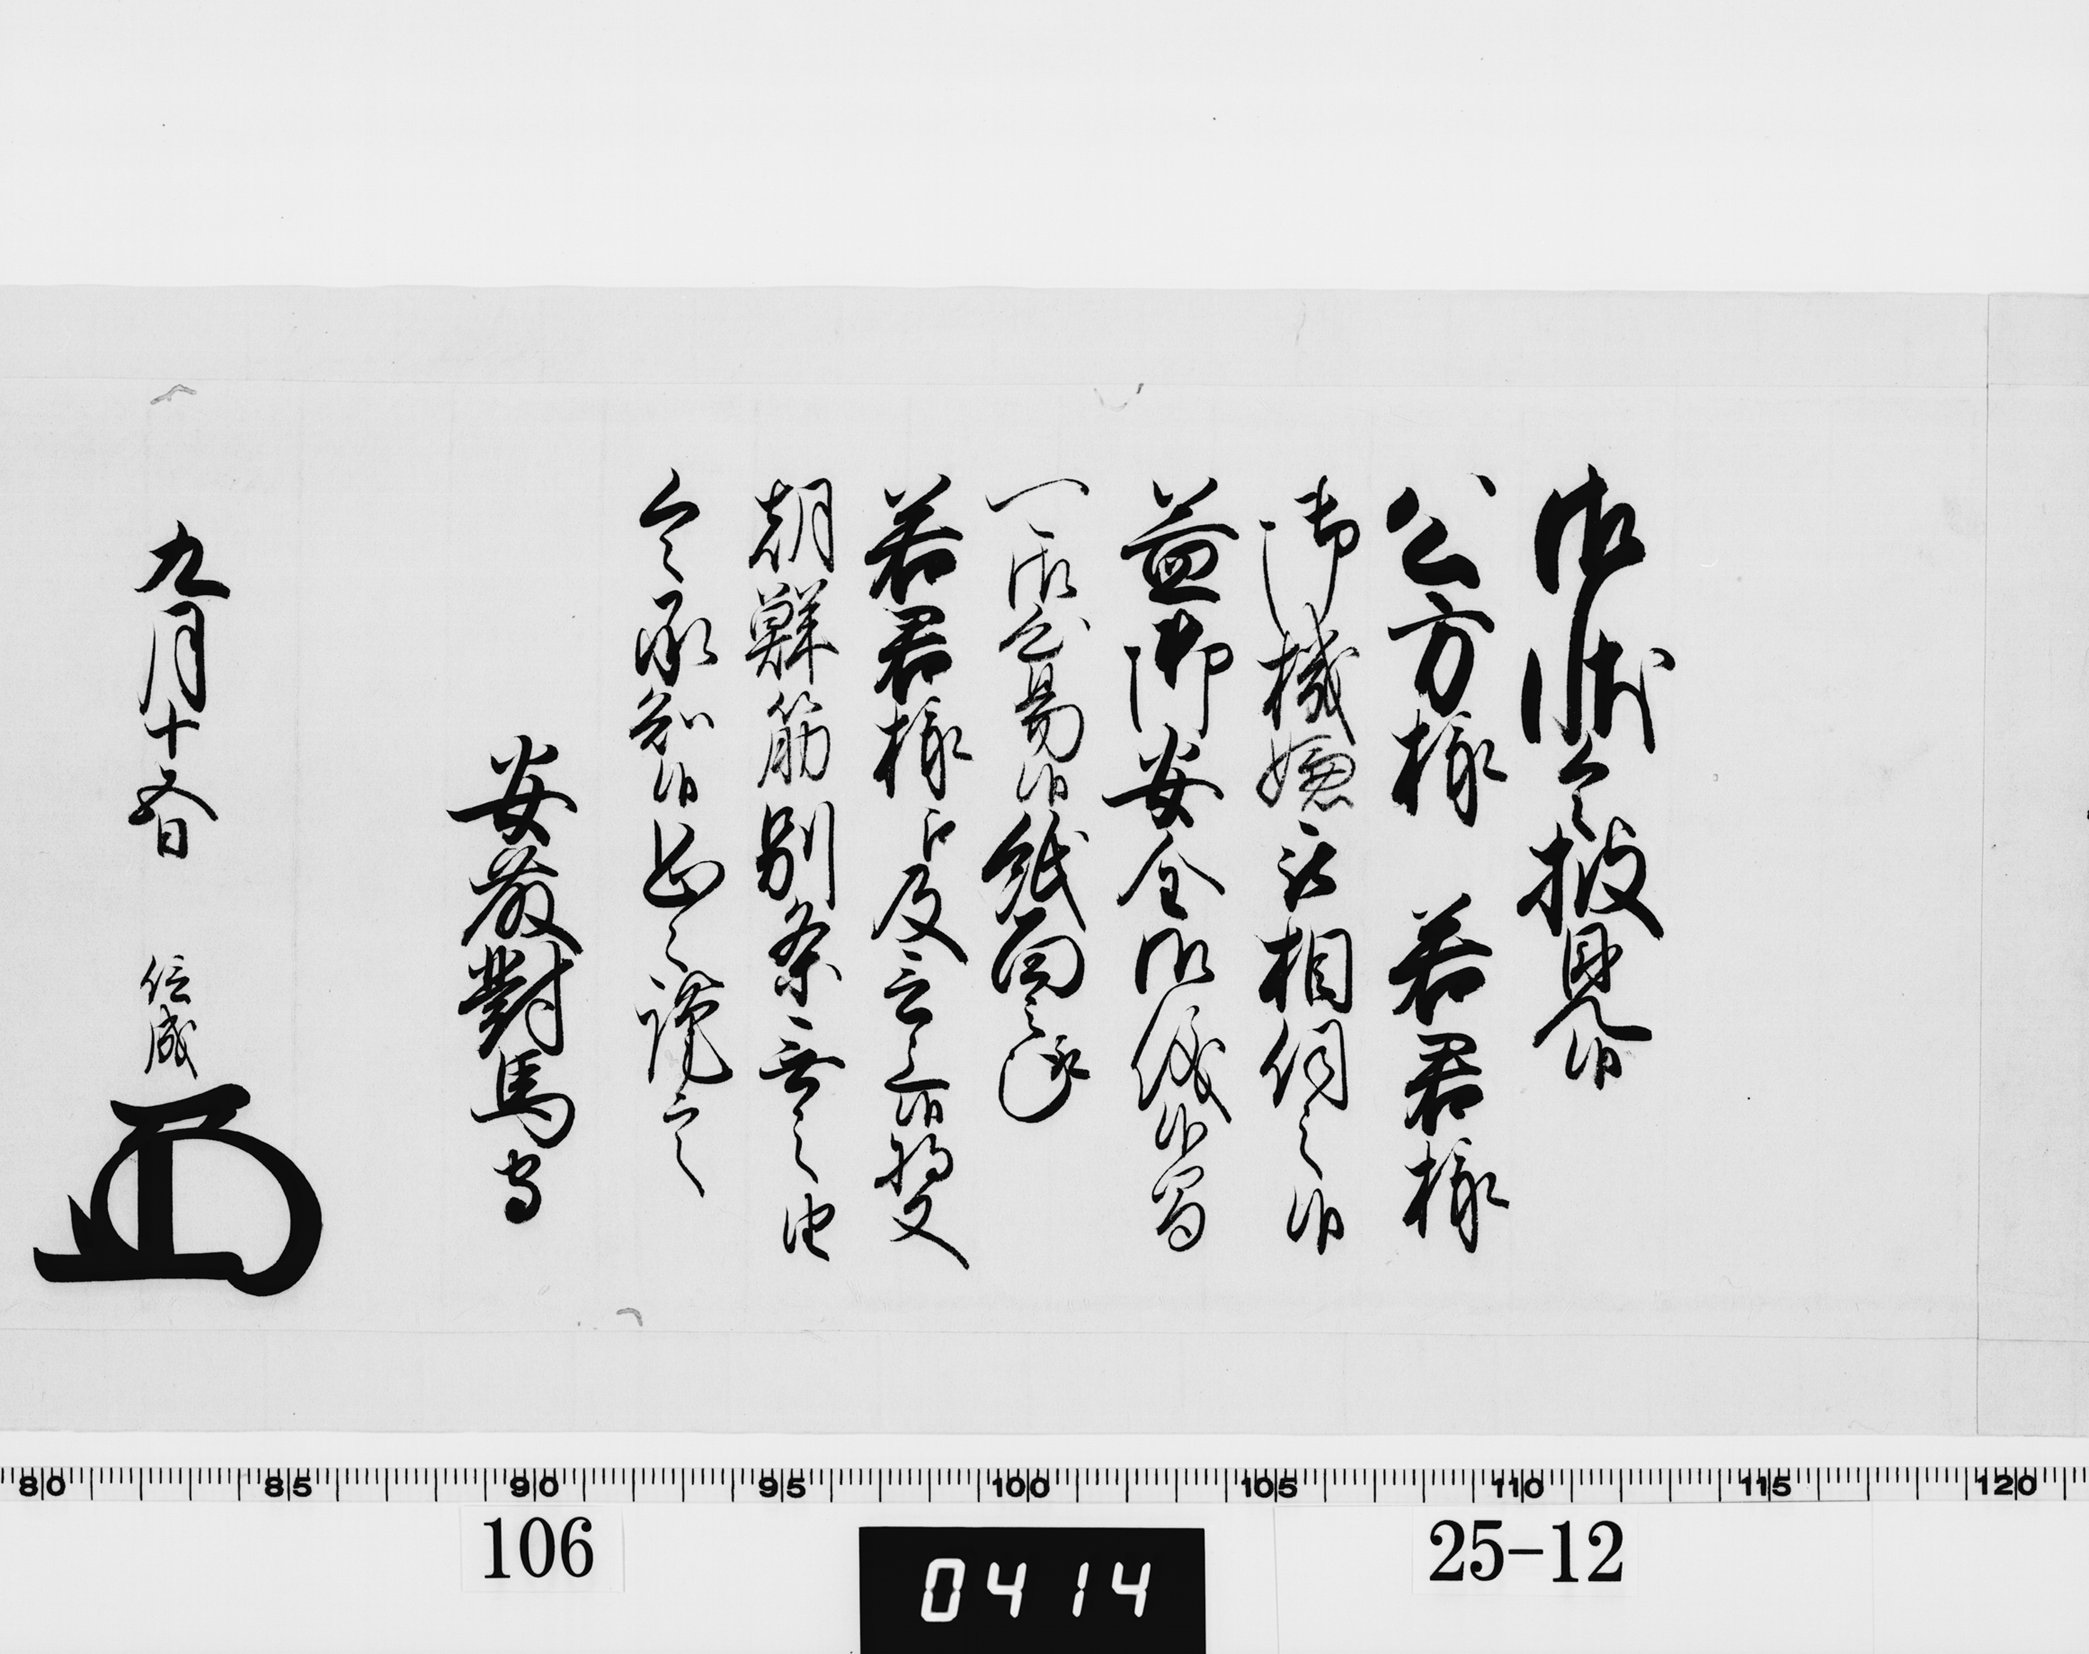 御状令披見候
公方様　若君様
御機嫌被相伺之候
益御安全御儀候間
可御心易候紙面之趣
若君様江及言上候将又
朝鮮筋別条無之由
令承知候恐々謹言
安藤對馬守
九月十五日　信成
80 85 90 95 100 105 110 115 120
106 0414 25-12